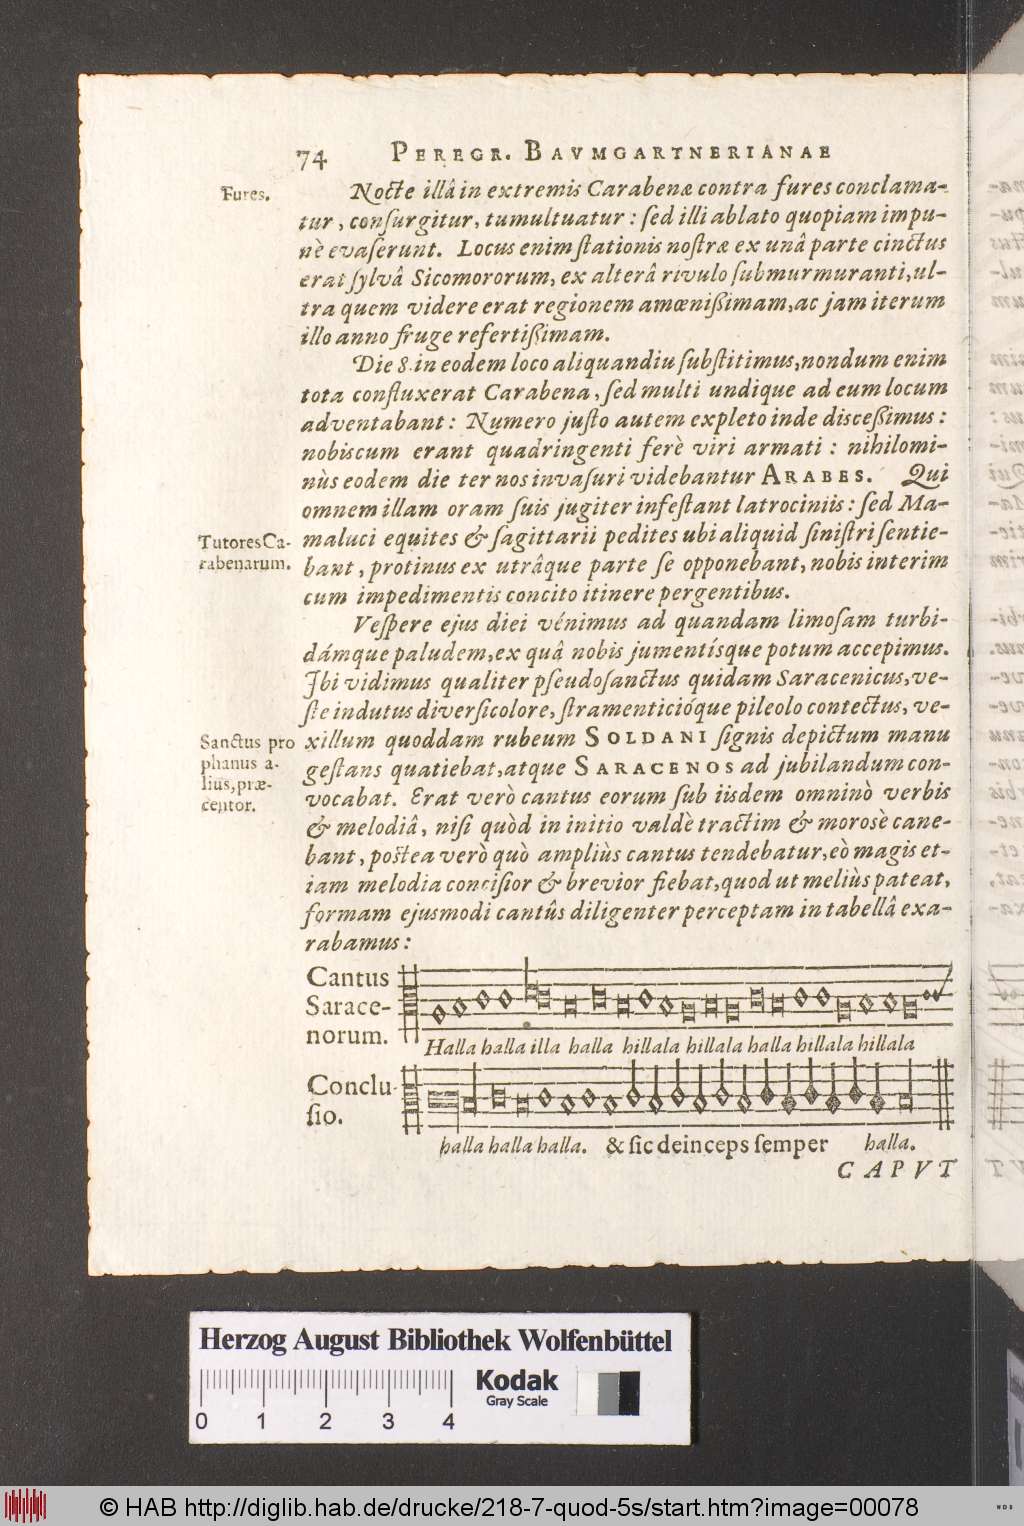 74 PEREGR. BAVMGARTNERIANAE
Fures.
Nocte illâ in extremis Carabenæ contra fures conclama-
tur, conſurgitur, tumultuatur: ſed illi ablato quopiam impu-
nè evaſerunt. Locus enim ſtationis noſtræ ex unâ parte cinctus
erat ſylvâ Sicomororum, ex alterâ rivulo ſubmurmuranti, ul-
tra quem videre erat regionem amœnißimam, ac jam iterum
illo anno fruge refertißimam.
Die 8. in eodem loco aliquandiu ſubſtitimus, nondum enim
tota confluxerat Carabena, ſed multi undique ad eum locum
adventabant: Numero juſto autem expleto inde disceßimus:
nobiscum erant quadringenti ferè viri armati: nihilomi-
nùs eodem die ter nos invaſuri videbantur ARABES. Qui
omnem illam oram ſuis jugiter infeſtant latrociniis: ſed Ma-
Tutores Ca-
rabenarum.
maluci equites & ſagittarii pedites ubi aliquid ſiniſtri ſentie-
bant, protinus ex utrâque parte ſe opponebant, nobis interim
cum impedimentis concito itinere pergentibus.
Veſpere ejus diei vénimus ad quandam limoſam turbi-
dámque paludem, ex quâ nobis jumentísque potum accepimus.
Ibi vidimus qualiter pſeudoſanctus quidam Saracenicus, ve-
ſte indutus diverſicolore, ſtramenticióque pileolo contectus, ve-
Sanctus pro
phanus a-
lius, præ-
centor.
xillum quoddam rubeum SOLDANI ſignis depictum manu
geſtans quatiebat, atque SARACENOS ad jubilandum con-
vocabat. Erat verò cantus eorum ſub iisdem omninò verbis
& melodiâ, niſi quòd in initio valdè tractim & morosè cane-
bant, poſtea verò quò ampliùs cantus tendebatur, eò magis et-
iam melodia conciſior & brevior fiebat, quod ut meliùs pateat,
formam ejusmodi cantûs diligenter perceptam in tabellâ exa-
rabamus:
Cantus
Sarace-
norum.
Halla halla illa halla hillala hillala halla hillala hillala
Conclu-
ſio.
halla halla halla. & ſic deinceps ſemper halla.
CAPVT
Herzog August Bibliothek Wolfenbüttel
Kodak
Gray Scale
0 1 2 3 4
© HAB http://diglib.hab.de/drucke/218-7-quod-5s/start.htm?image=00078